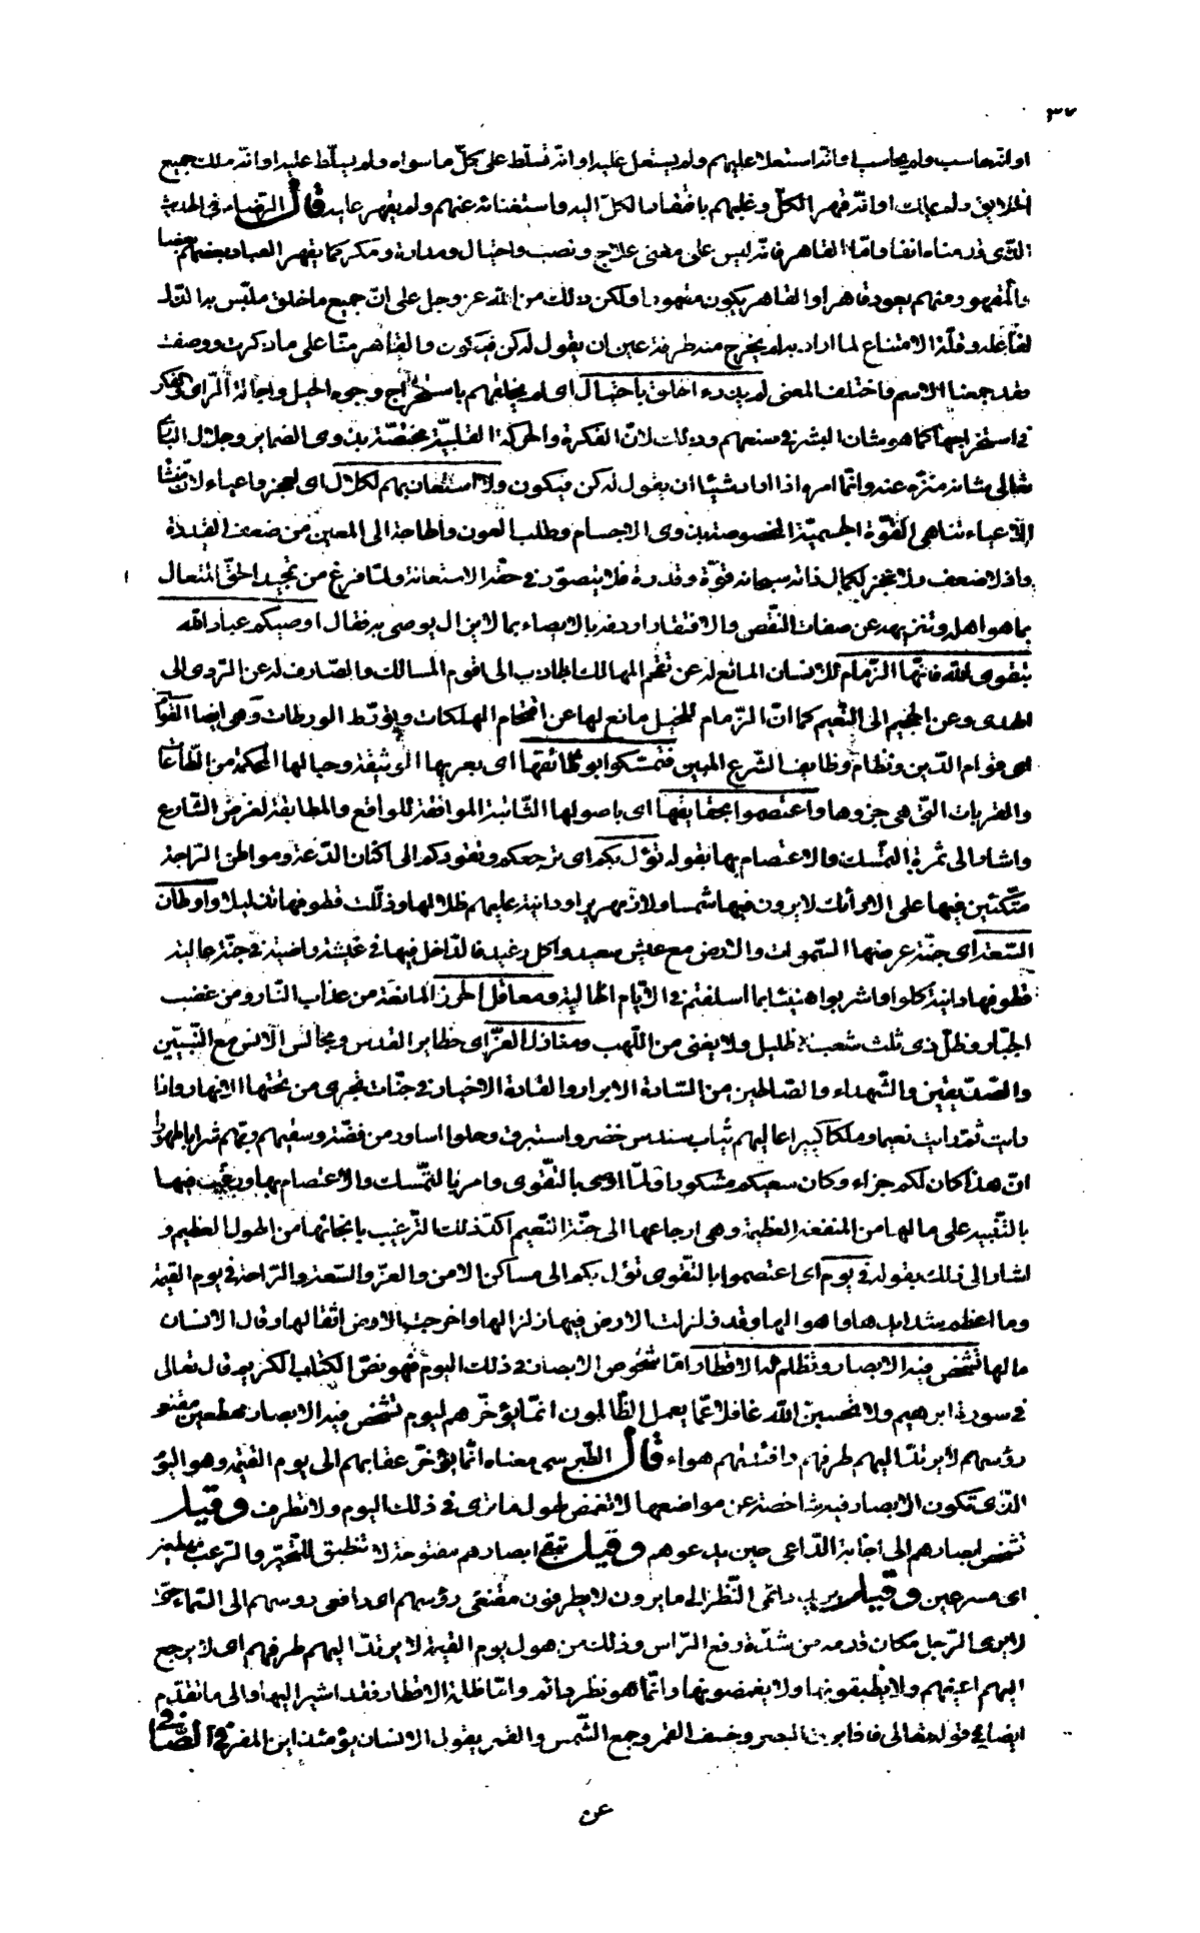 ٣٧
او انّه حاسب ولم يحاسب او انّه استعلا عليهم ولم يستعل عليه او انّه تسلّط على كلّ ما سواه ولم يسلّط عليه او انّه ملك جميع
الخلايق ولم يملك او انّه قهر الكلّ وغلبهم بافتقار الكلّ اليه واستغنائه عنهم ولم يقهر عليه قال الرّضاء في الحديث
الّذى قدمناه انفا وامّا القاهر فانّه ليس على معنى علاج ونصب واحتيال ومداراة ومكر كما يقهر العباد بعضهم بعضا
والمقهور منهم يعود قاهرا والقاهر يكون مقهورا ولكن ذلك من الله عز وجل على انّ جميع ما خلق ملبّس به الذّل
لفاعله وقلّة الامتناع لما اراد به لم يخرج منه طرفة عين ان يقول له كن فيكون والقاهر منّا على ما ذكرت ووصفت
فقد جمعنا الاسم واختلف المعنى لم يذرء الخلق باحتيال اى لم يخلقهم باستخراج وجوه الحيل واجالة الرّاى والفكر
في استخراجها كما هو شان البشر في صنعهم وذلك لانّ الفكرة والحركة القلبيّة مختصّة بذوى الضماير وجلال البارى
تعالى شانه منزّه عنه وانّما امره اذا اراد شيئا ان يقول له كن فيكون ولا استعان بهم لكلال اى لعجز واعياء لانّ منشا
الاعياء تناهى القوّة الجسميّة المخصوصة بذوى الاجسام وطلب العون والحاجة الى المعين من ضعف القدرة
واذ لا ضعف ولا عجز لكمال ذاته سبحانه قوّة وقدرة فلا يتصوّر في حقّه الاستعانة ولمّا فرغ من تمجيد الحقّ المتعال
بما هو اهله وتنزيهه عن صفات النّقص والافتقار اردفه بالايصاء بما لا يزال يوصى به فقال اوصيكم عباد الله
بتقوى الله فانّها الزّمام للانسان المانع له عن تقحّم المهالك الجاذب الى اقوم المسالك والصّارف له عن الرّدى الى
الهدى وعن الجحيم الى النّعيم كما انّ الزّمام للخيل مانع لها عن اقتحام الهلكات وتورّط الورطات وهى ايضا القوام
اى قوام الدّين ونظام وظايف الشّرع المبين فتمسّكوا بوثائقها اى بعريها الوثيقة وحبالها المحكمة من الطّاعات
والقربات الّتى هى جزوها واعتصموا بحقايقها اى باصولها الثّابتة الموافقة للواقع والمطابقة لغرض الشّارع
واشار الى ثمرة التمسّك والاعتصام بها بقوله تؤل بكم اى ترجعكم وتقودكم الى اكنان الدّعة ومواطن الرّاحة
متّكئين فيها على الارائك لا يرون فيها شمسا ولا زمهريرا ودانية عليهم ظلالها وذلّلت قطوفها تذليلا واوطان
السّعة اى جنّة عرضها السّموات والارض مع عيش سعيد واكل رغيد فالدّاخل فيها في عيشة راضية في جنّة عالية
قطوفها دانية كلوا واشربوا هنيئا بما اسلفتم في الايّام الخالية ومعاقل الحرز المانعة من عذاب النّار ومن غضب
الجبّار وظلّ ذى ثلث شعب لا ظليل ولا يغنى من اللّهب ومنازل العزّ اى حظاير القدس ومجالس الانس مع النّبيّين
والصّدّيقين والشّهداء والصّالحين من السّادة الابرار والقادة الاخيار في جنّات تجرى من تحتها الانهار واذا
رايت ثمّ رايت نعيما وملكا كبيرا عاليهم ثياب سندس خضر واستبرق وحلوا اساور من فضّة وسقيهم ربّهم شرابا طهورا
انّ هذا كان لكم جزاء وكان سعيكم مشكورا ولمّا اوصى بالتّقوى وامر بالتمسّك والاعتصام بها ورغّب فيها
بالتّنبيه على ما لها من المنفعة العظيمة وهى ارجاعها الى جنّة النّعيم اكّد ذلك التّرغيب بانجائها من الهول العظيم و
اشار الى ذلك بقوله في يوم اى اعتصموا بالتّقوى تؤل بكم الى مساكن الامن والعزّ والسّعة والرّاحة في يوم القيمة
وما اعظم شدايدها واهوالها وقد زلزلت الارض فيها زلزالها واخرجت الارض اثقالها وقال الانسان
مالها تشخص فيه الابصار وتظلم له الاقطار امّا شخوص الابصار في ذلك اليوم فهو نصّ الكتاب الكريم قال تعالى
في سورة ابرهيم ولا تحسبنّ الله غافلا عمّا يعمل الظّالمون انّما يؤخّرهم ليوم تشخص فيه الابصار مهطعين مقنعى
رؤسهم لا يرتدّ اليهم طرفهم وافئدتهم هواء قال الطّبرسى معناه انّما يؤخّر عقابهم الى يوم القيمة وهو اليوم
الّذى تكون الابصار فيه شاخصة عن مواضعها لا تغمض لهول ما ترى في ذلك اليوم ولا تطرف وقيل
تشخص ابصارهم الى اجابة الدّاعى حين يدعوهم وقيل تبقى ابصارهم مفتوحة لا تنطبق للتّحيّر والرّعب مهطعين
اى مسرعين وقيل يريد دائمى النّظر الى ما يرون لا يطرفون مقنعى رؤسهم اى رافعى روسهم الى السّماء حتّى
لا يرى الرّجل مكان قدمه من شدّة رفع الرّاس وذلك من هول يوم القيمة لا يرتدّ اليهم طرفهم اى لا يرجع
اليهم اعينهم ولا يطبقونها ولا يغمضونها وانّما هو نظر دائم وامّا ظلمة الاقطار فقد اشير اليها والى ما تقدّم
ايضا في قوله تعالى فاذا برق البصر وخسف القمر وجمع الشّمس والقمر يقول الانسان يؤمئذ اين المفرّ في الصّافى
عن